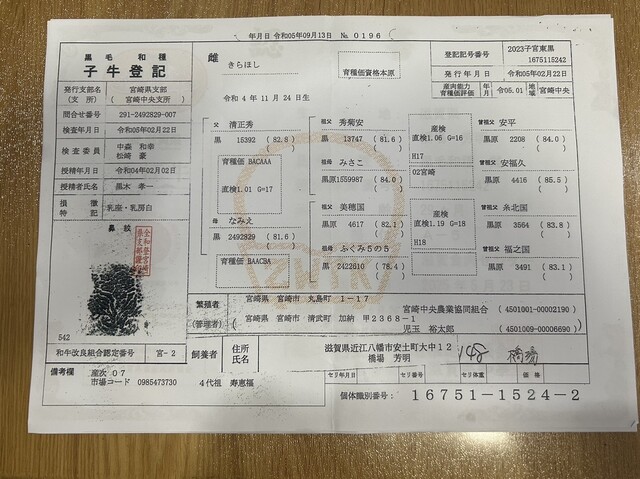 年月日 令和05年09月13日 № 0196
黒毛 和種
子牛登記
雌
きらほし
育種価資格本原
登記記号番号 2023子宮東黒 1675115242
発行年月日 令和05年02月22日
産肉能力育種価評価 年月 令05.01 地域 宮崎
発行支部名(支所) 宮崎県支部 (宮崎中央支所)
令和 4 年 11 月 24 日生
問合せ番号 291-2492829-007
検査年月日 令和05年02月22日
検査委員 中森 和幸
松崎 豪
授精年月日 令和04年02月02日
授精者氏名 黒木 孝一
損徴特記 乳座・乳房白
鼻紋
542
父 清正秀
黒 15392 (82.8)
育種価 BACAAA
直検1.01 G=17
母 なみえ
黒 2492829 (81.6)
育種価 BAACBA
祖父 菊安
黒原 13747 (81.6)
祖母 みさこ
黒原1559987 (84.0)
祖父 美穂国
黒原 4617 (82.1)
祖母 ふくみ5の5
黒 2422610 (78.4)
産検
直検1.06 G=16
H17
02宮崎
産検
直検1.19 G=18
H18
曽祖父 安平
黒原 2208 (84.0)
曽祖父 安福久
黒原 4416 (85.5)
曽祖父 糸北国
黒原 3564 (83.8)
曽祖父 福之国
黒原 3491 (83.1)
繁殖者 宮崎県 宮崎市 丸島町 1-17
宮崎中央農業協同組合 (4501001-00002190)
(管理者) 宮崎県 宮崎市 清武町 加納 甲2368-1
児玉 裕太郎 (4501009-00006690)
和牛改良組合認定番号 宮-2
飼養者 住所 滋賀県近江八幡市安土町大中12
氏名 橋場 芳明
148 橋場
備考欄 産次 07
市場コード 0985473730
4代祖 寿恵福
セリ年月日 セリ番号 セリ体重 価格
個体識別番号: 16751-1524-2